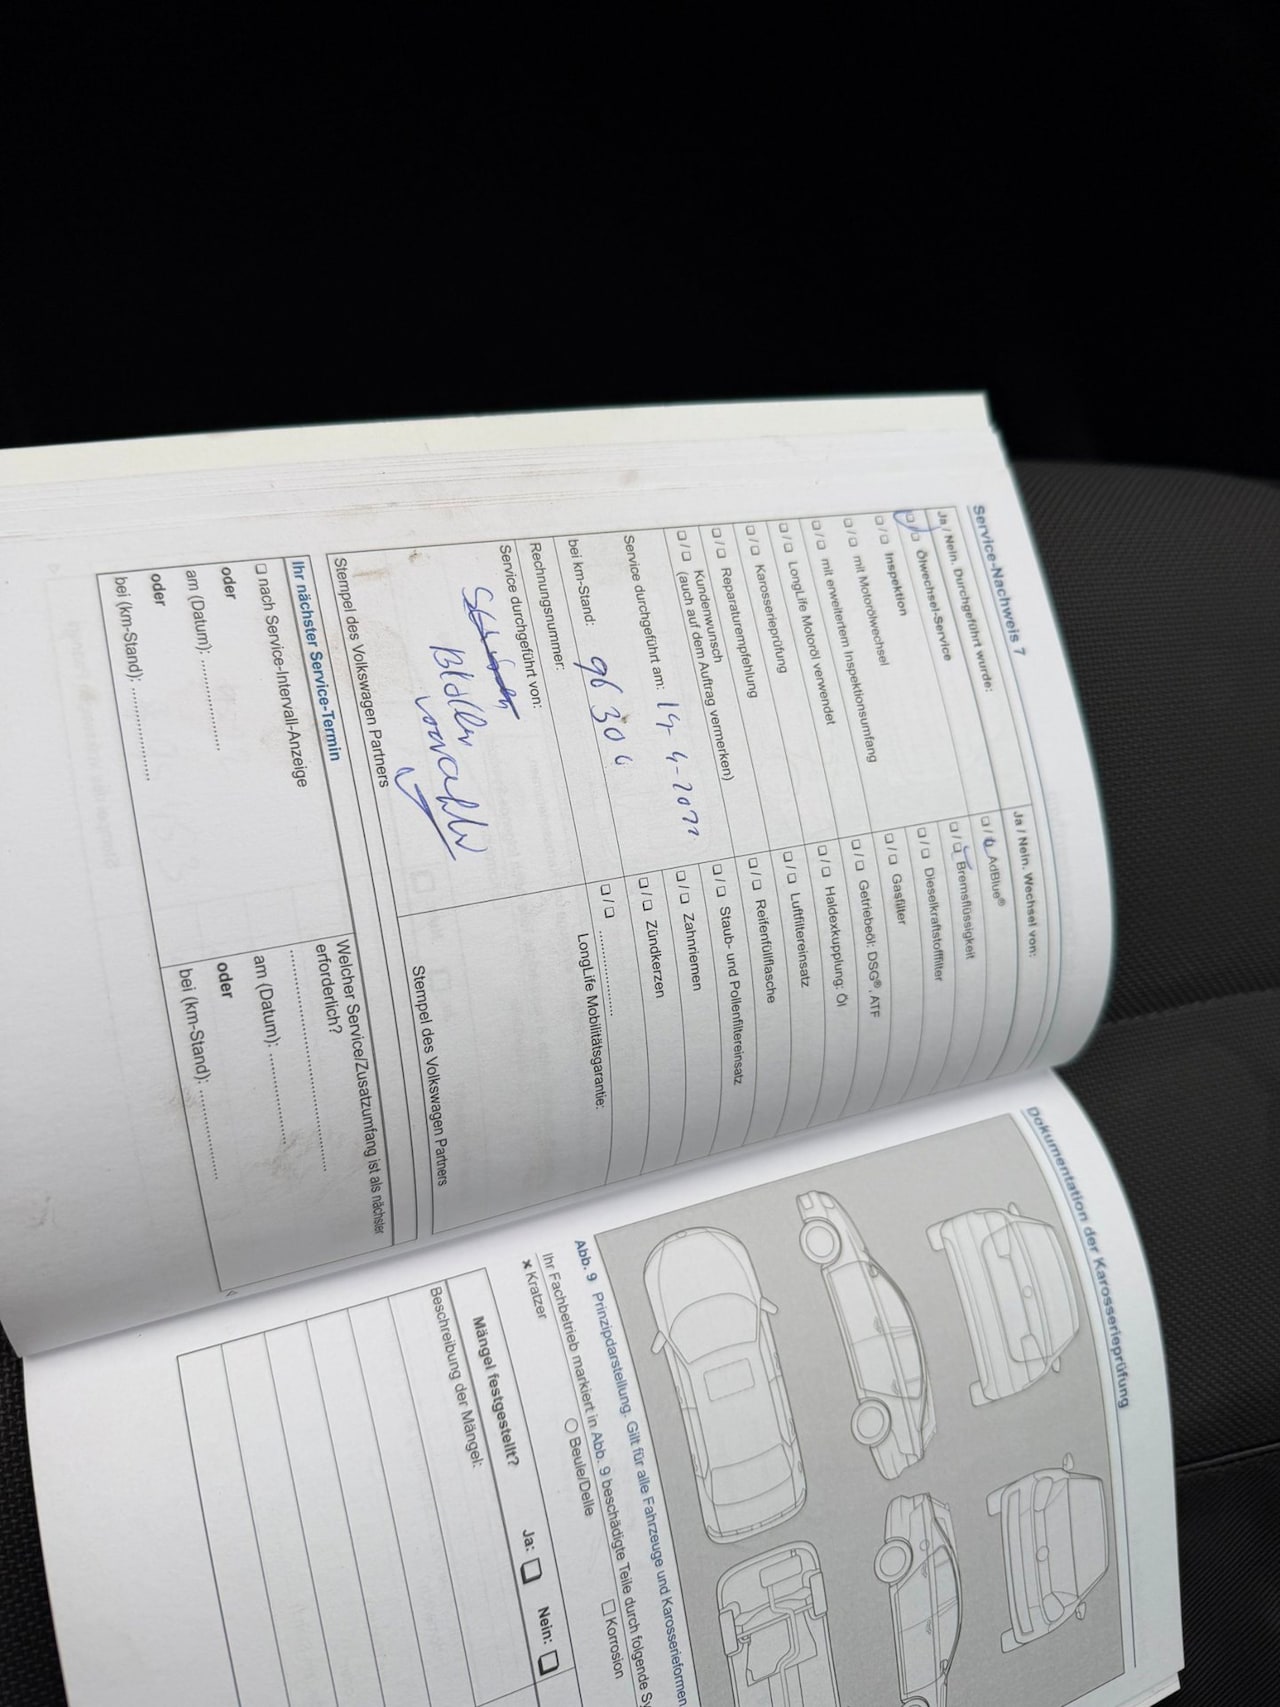 Service-Nachweis 7
Ja / Nein. Durchgeführt wurde:
❏ / ❏ Ölwechsel-Service
❏ / ❏ Inspektion
❏ / ❏ mit Motorölwechsel
❏ / ❏ mit erweitertem Inspektionsumfang
❏ / ❏ LongLife Motoröl verwendet
❏ / ❏ Karosserieprüfung
❏ / ❏ Reparaturempfehlung
❏ / ❏ Kundenwunsch
(auch auf dem Auftrag vermerken)
Service durchgeführt am:
bei km-Stand: 96 30
Rechnungsnummer:
Service durchgeführt von:
Stempel des Volkswagen Partners
Ja / Nein. Wechsel von:
❏ / ❏ AdBlue®
❏ / ❏ Bremsflüssigkeit
❏ / ❏ Dieselkraftstofffilter
❏ / ❏ Gasfilter
❏ / ❏ Getriebeöl: DSG®, ATF
❏ / ❏ Haldexkupplung: Öl
❏ / ❏ Luftfiltereinsatz
❏ / ❏ Reifenfüllflasche
❏ / ❏ Staub- und Pollenfiltereinsatz
❏ / ❏ Zahnriemen
❏ / ❏ Zündkerzen
❏ / ❏ ................
LongLife Mobilitätsgarantie:
Stempel des Volkswagen Partners
Ihr nächster Service-Termin
❏ nach Service-Intervall-Anzeige
oder
am (Datum): ................
oder
bei (km-Stand): ................
Welcher Service/Zusatzumfang ist als nächster
erforderlich?
................................
am (Datum): ................
oder
bei (km-Stand): ................
Dokumentation der Karosserieprüfung
Abb. 9 Prinzipdarstellung. Gilt für alle Fahrzeuge und Karosserieformen
Ihr Fachbetrieb markiert in Abb. 9 beschädigte Teile durch folgende Sy
× Kratzer ○ Beule/Delle □ Korrosion
Mängel festgestellt? Ja: ❏ Nein: ❏
Beschreibung der Mängel: